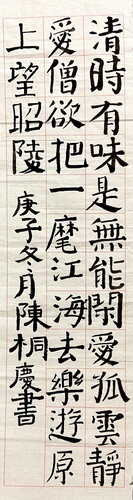 清時有味是無能閑愛孤雲靜
愛僧欲把一麾江海去樂遊原
上望昭陵 庚子冬月陳桐慶書